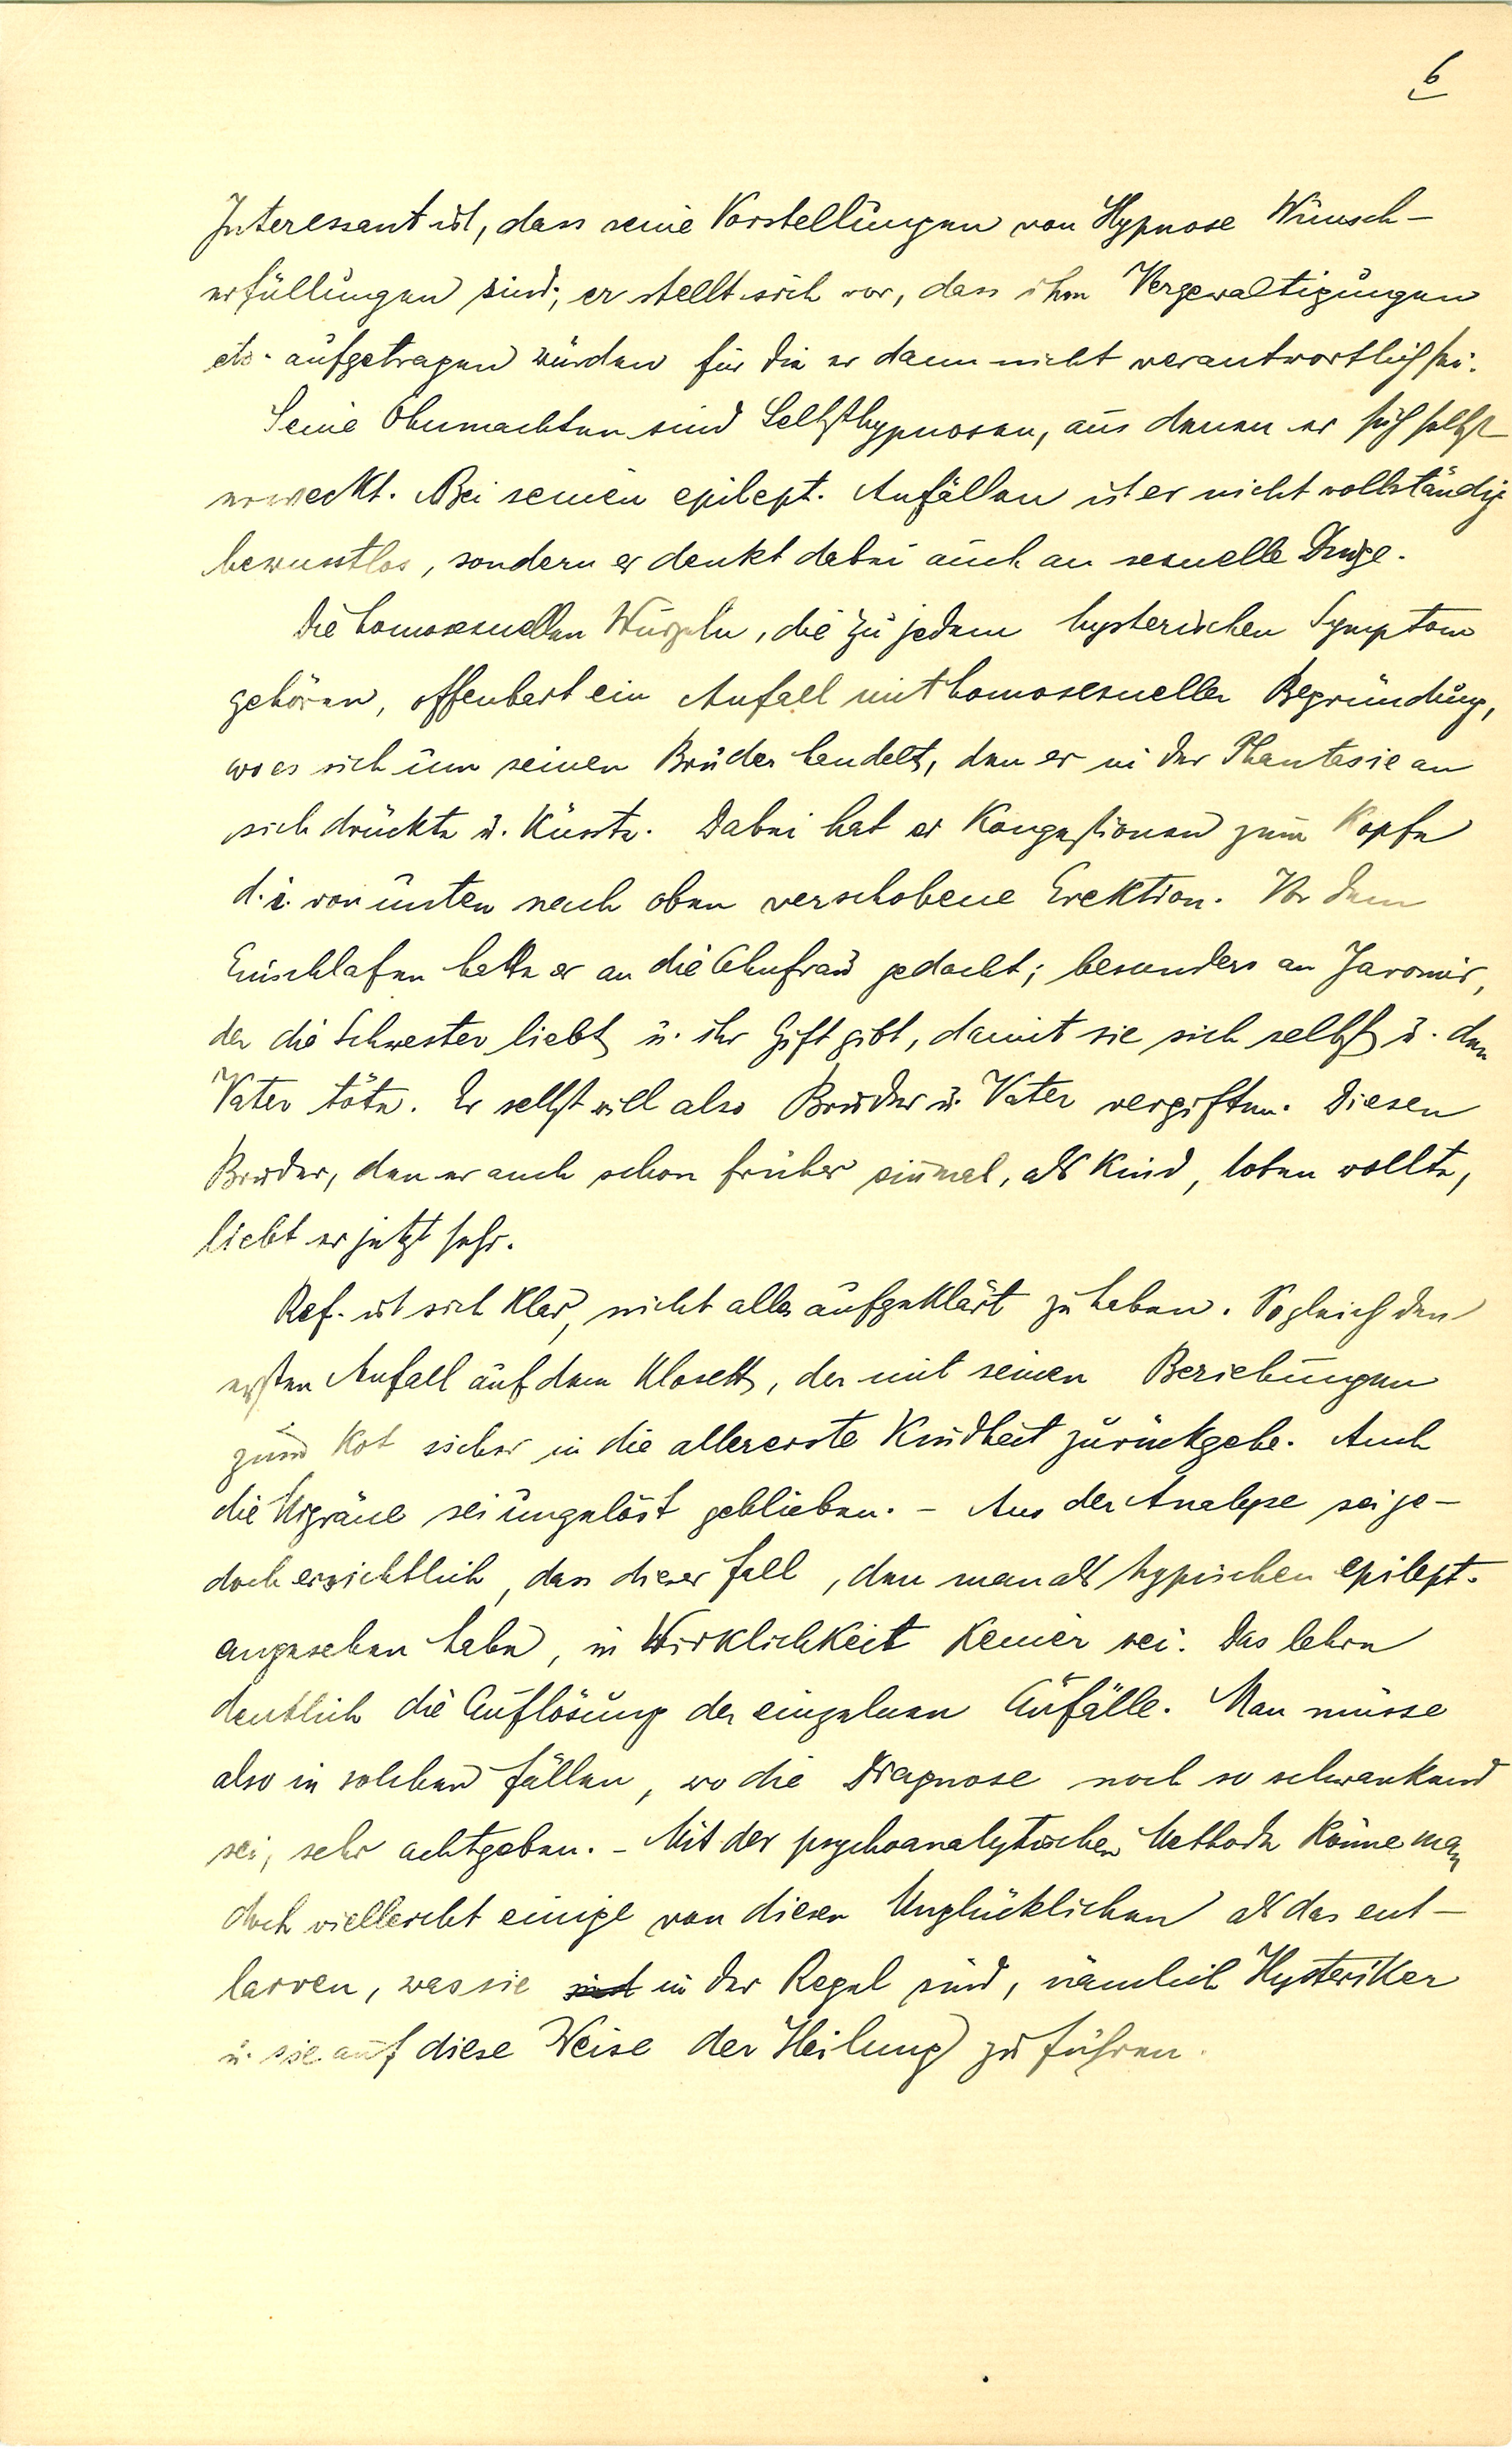 6
Interessant ist, dass seine Vorstellungen von Hypnose Wunsch-
erfüllungen sind; er stellt sich vor, dass ihm Vergewaltigungen
etc. aufgetragen würden für die er dann nicht verantwortlich sei.
Seine Ohnmachten sind Selbsthypnosen, aus denen er sich selbst
erweckt. Bei seinen epilept. Anfällen ist er nicht vollständig
bewusstlos, sondern er denkt dabei auch an sexuelle Dinge.
Die homosexuellen Wurzeln, die zu jedem hysterischen Symptom
gehören, offenbart ein Anfall mit homosexueller Begründung,
wo es sich um seinen Bruder handelt, den er in der Phantasie an
sich drückte u. küsste. Dabei hat er Kongestionen zum Kopfe
d. i. von unten nach oben verschobene Erektion. Vor dem
Einschlafen hatte er an die Ahnfrau gedacht; besonders an Jaromir,
der die Schwester liebt u. ihr Gift gibt, damit sie sich selbst u. den
Vater töte. Er selbst will also Bruder u. Vater vergiften. Diesen
Bruder, den er auch schon früher einmal, als Kind, töten wollte,
liebt er jetzt sehr.
Ref. ist sich klar, nicht alles aufgeklärt zu haben. Sogleich den
ersten Anfall auf dem Klosett, der mit seinen Beziehungen
zum Kot sicher in die allererste Kindheit zurückgehe. Auch
die Migräne sei ungelöst geblieben. - Aus der Analyse sei je-
doch ersichtlich, dass dieser Fall, den man als typischen epilept.
angesehen habe, in Wirklichkeit keiner sei. Das lehre
deutlich die Auflösung der einzelnen Anfälle. Man müsse
also in solchen Fällen, wo die Diagnose noch so schwankend
sei, sehr achtgeben. - Mit der psychoanalytischen Methode könne man
doch vielleicht einige von diesen Unglücklichen als das ent-
larven, was sie sind in der Regel sind, nämlich Hysteriker
u. sie auf diese Weise der Heilung zu führen.